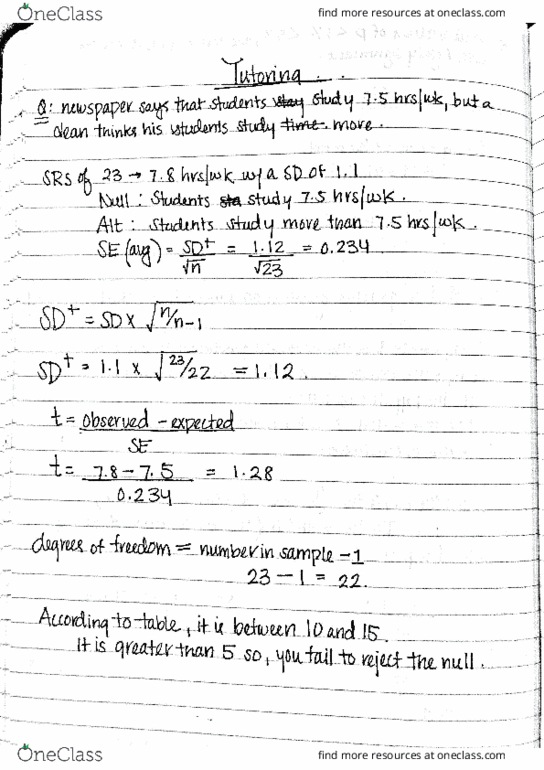 OneClass
find more resources at oneclass.com
Tutoring . . .
Q: newspaper says that students stay study 7.5 hrs/wk, but a
dean thinks his students study time more.
SRS of 23 → 7.8 hrs/wk w/ a SD of 1.1
Null: Students sta study 7.5 hrs/wk.
Alt: Students study more than 7.5 hrs/wk.
SE (avg) = SD⁺/√n = 1.12/√23 = 0.234
SD⁺ = SD x √n/n-1
SD⁺ = 1.1 x √23/22 = 1.12.
t = observed - expected
SE
t = 7.8 - 7.5 = 1.28
0.234
degrees of freedom = number in sample - 1
23 - 1 = 22.
According to table, it is between 10 and 15.
It is greater than 5 so, you fail to reject the null.
OneClass
find more resources at oneclass.com